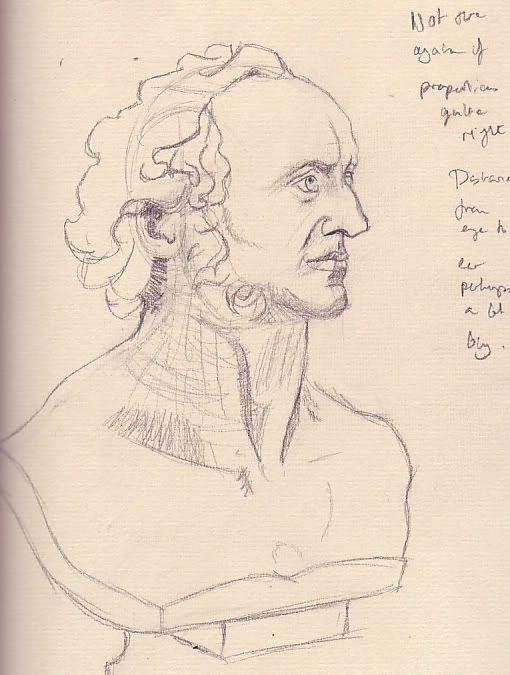 Not sure
again if
proportions
quite
right
Distance
from
eye to
ear
perhaps
a bit
big.